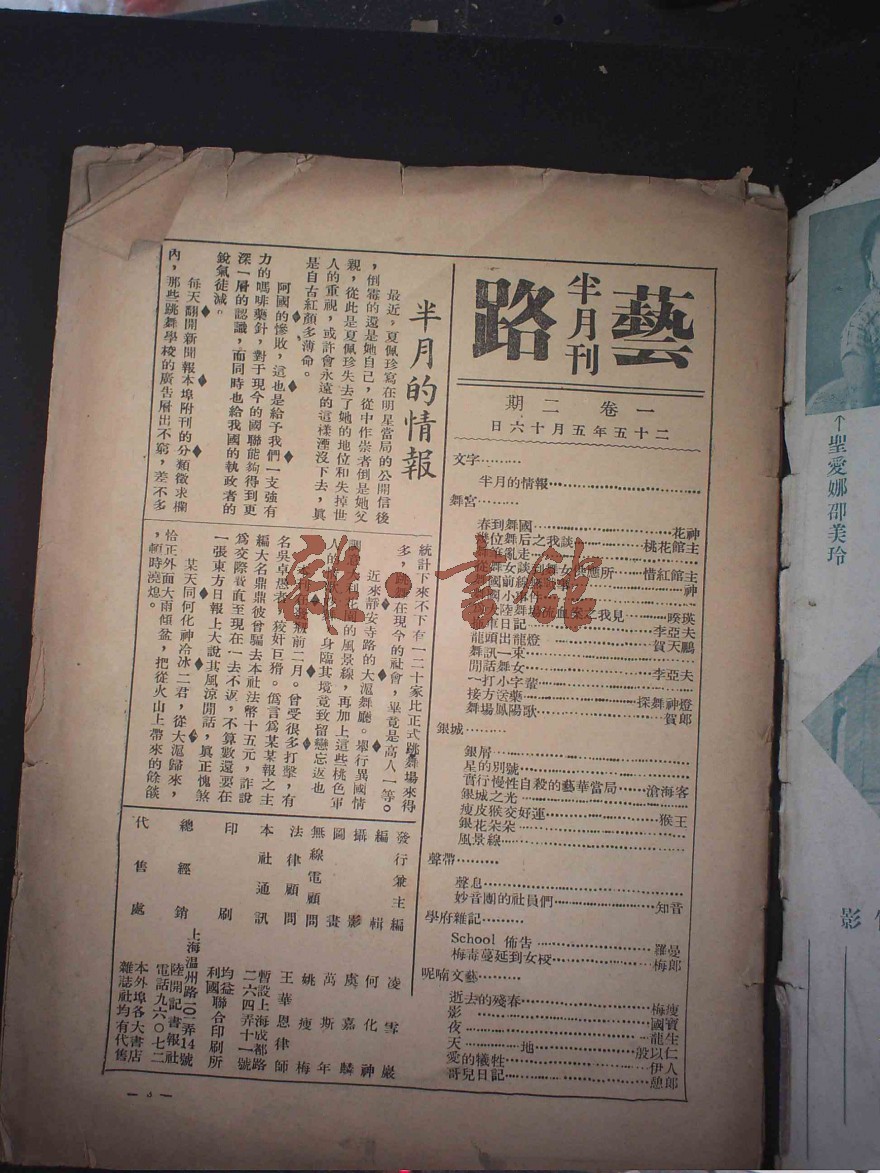 藝路
半月刊
一卷二期
二十五年五月十六日
文字………
半月的情報………
舞宮………
春到舞國………花神
位舞后之我談………桃花館主
亂走………
從舞女談到舞女供應所………惜紅館主
國前線
國小事件………神
大陸舞場流血案之我見………睽瑛
車日記………李亞夫
龍頭出龍燈………賀天鵬
舞訊一束………
閒話舞女………李亞夫
一打小字輩………
接方送藥………探舞神燈
舞場鳳陽歌………賀郎
銀城………
銀屑………
星的別號………
實行慢性自殺的藝華當局………滄海客
銀城之光………
瘦皮猴交好運………猴王
銀花朵朵………
風景線………
聲帶………
聲息………
妙音團的社員們………知音
學府雜記………
School 佈告………羅曼
梅毒蔓延到女校………梅郎
呢喃文藝………
逝去的殘春………梅瘦
影………國寶
夜………龍生
天………地………殷以仁
愛的犧牲………伊人
哥兒日記………憩郎
半月的情報
最近,夏佩珍寫在明星當局的公開信後
,倒霉的還是她自己,從中作祟者倒是她父
親,從此是夏佩珍失去了她的地位和失掉世
人的重視,或許會永遠的這樣湮沒下去,眞
是自古紅顏多薄命。
阿國的慘敗,這也是給予我們一支強有
力的嗎啡藥針,對于現今的國聯能夠得到更
深一層的認識,而同時也給我國的執政者的
銳氣徒減。
每天翻開新聞報本埠附刊的分類徵求欄
內,那些跳舞學校的廣告層出不窮,差不多
統計下來不下有一二十家比正式跳舞場來得
多,跳舞在現今的社會,畢竟是高人一等。
近來靜安寺路的大滬舞廳。舉行異國情
調意大利花園的風景線,再加上這些桃色軍
人的 身臨其境竟致留戀忘返也
本刊在 版前二月。曾受很多打擊,有
名吳卓愚者,狡奸巨猾。僞言爲某某報之主
編大名鼎鼎彼曾騙去本社法幣十五元,詐說
爲交際費直至現在一去不返,不算數還要在
一張東方日報上大說其風涼閒話,眞正愧煞
某天同何化神冷冰二君,從大滬歸來,
恰正外面大雨傾盆,把從火山上帶來的餘燄
,頓時澆熄。
發行兼主編 凌雪巖
編輯 何化神
攝影 虞嘉麟
圖畫 萬斯年
無線電顧問 姚瘦梅
法律顧問 王華恩律師
本社通訊 暫設上海成都路二六四弄十一號
印刷 均益利國聯合印刷所
總經銷 上海溫州路一〇二弄14號陸開記書報社電話九六〇七二
代售處 本外埠各大書店雜誌社均有代售
— 3 —
↑聖愛娜邵美玲
影
雜·書館